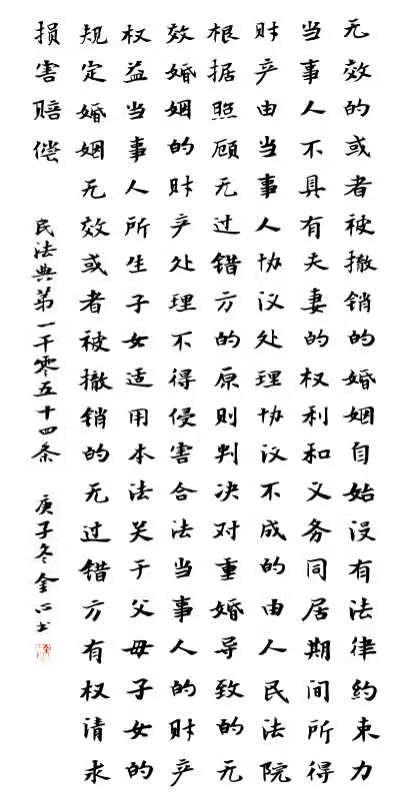 无效的或者被撤销的婚姻自始没有法律約束力
当事人不具有夫妻的权利和义务同居期间所得
财产由当事人协议处理协议不成的由人民法院
根据照顾无过错方的原则判决对重婚导致的无
效婚姻的财产处理不得侵害合法当事人的财产
权益当事人所生子女适用本法关于父母子女的
规定婚姻无效或者被撤销的无过错方有权请求
损害赔偿 民法典第一千零五十四条 庚子冬金心书